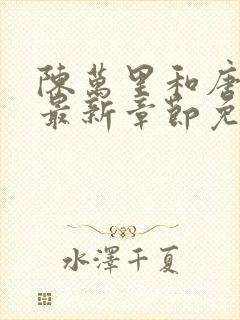 陳萬里和唐
最新章節免
水澤千夏